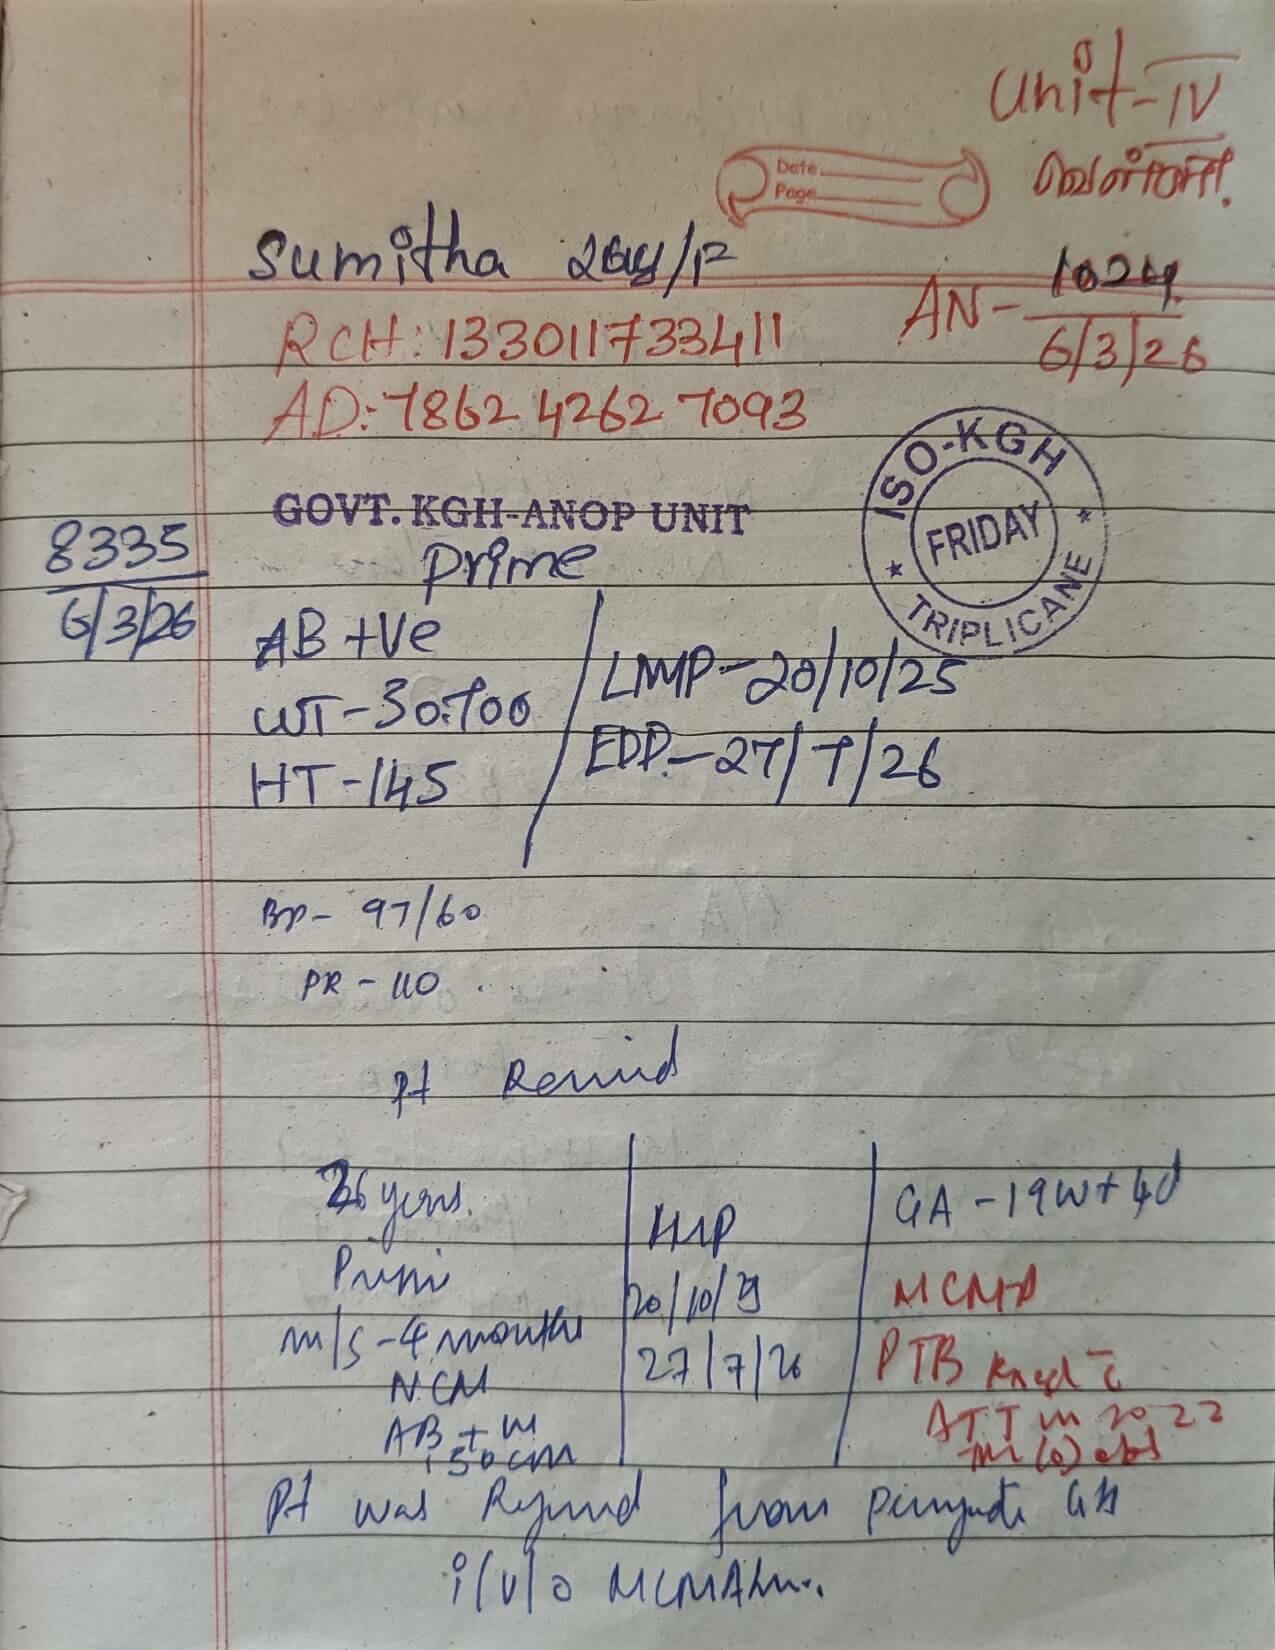 Unit-IV
Date
Page
Sumitha 26y/F
AN- 1024
6/3/26
RCH: 133011733411
AD:-7862 4262 7093
ISO-KGH
FRIDAY
TRIPLICANE
GOVT. KGH-ANOP UNIT
8335
6/3/26
Prime
AB +Ve
WT-30.700
HT-145
LMP-20/10/25
EDD.-27/7/26
BP- 97/60
PR - 110
Pt
26 years.
Primi
m/s - 4 months
NCM
AB +ve
150 cm
LMP
20/10/25
27/7/26
GA - 19W+4d
MCMA
PTB
ATT in 2022
Pt was from GH
i/v/o